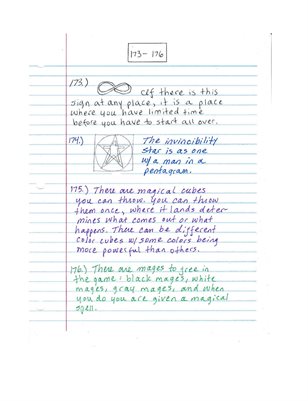 173-176
173.) If there is this
sign at any place, it is a place
where you have limited time
before you have to start all over.
174.) The invincibility
star is as one
w/a man in a
pentagram.
175.) There are magical cubes
you can throw. You can throw
them once, where it lands deter-
mines what comes out or what
happens. There can be different
color cubes w/some colors being
more powerful than others.
176.) There are mages to free in
the game: black mages, white
mages, gray mages, and when
you do you are given a magical
spell.